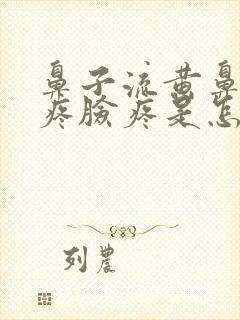 鼻子流黄鼻
疼脸疼是怎
列農